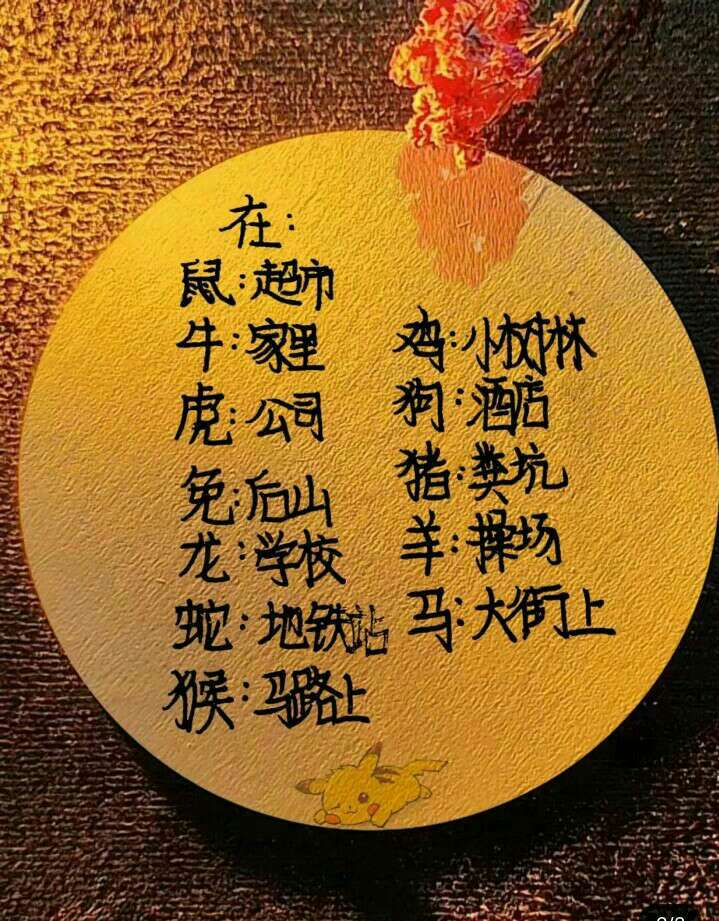 在:
鼠:超市
牛:家里
虎:公司
兔:后山
龙:学校
蛇:地铁站
猴:马路上
鸡:小树林
狗:酒店
猪:粪坑
羊:操场
马:大街上